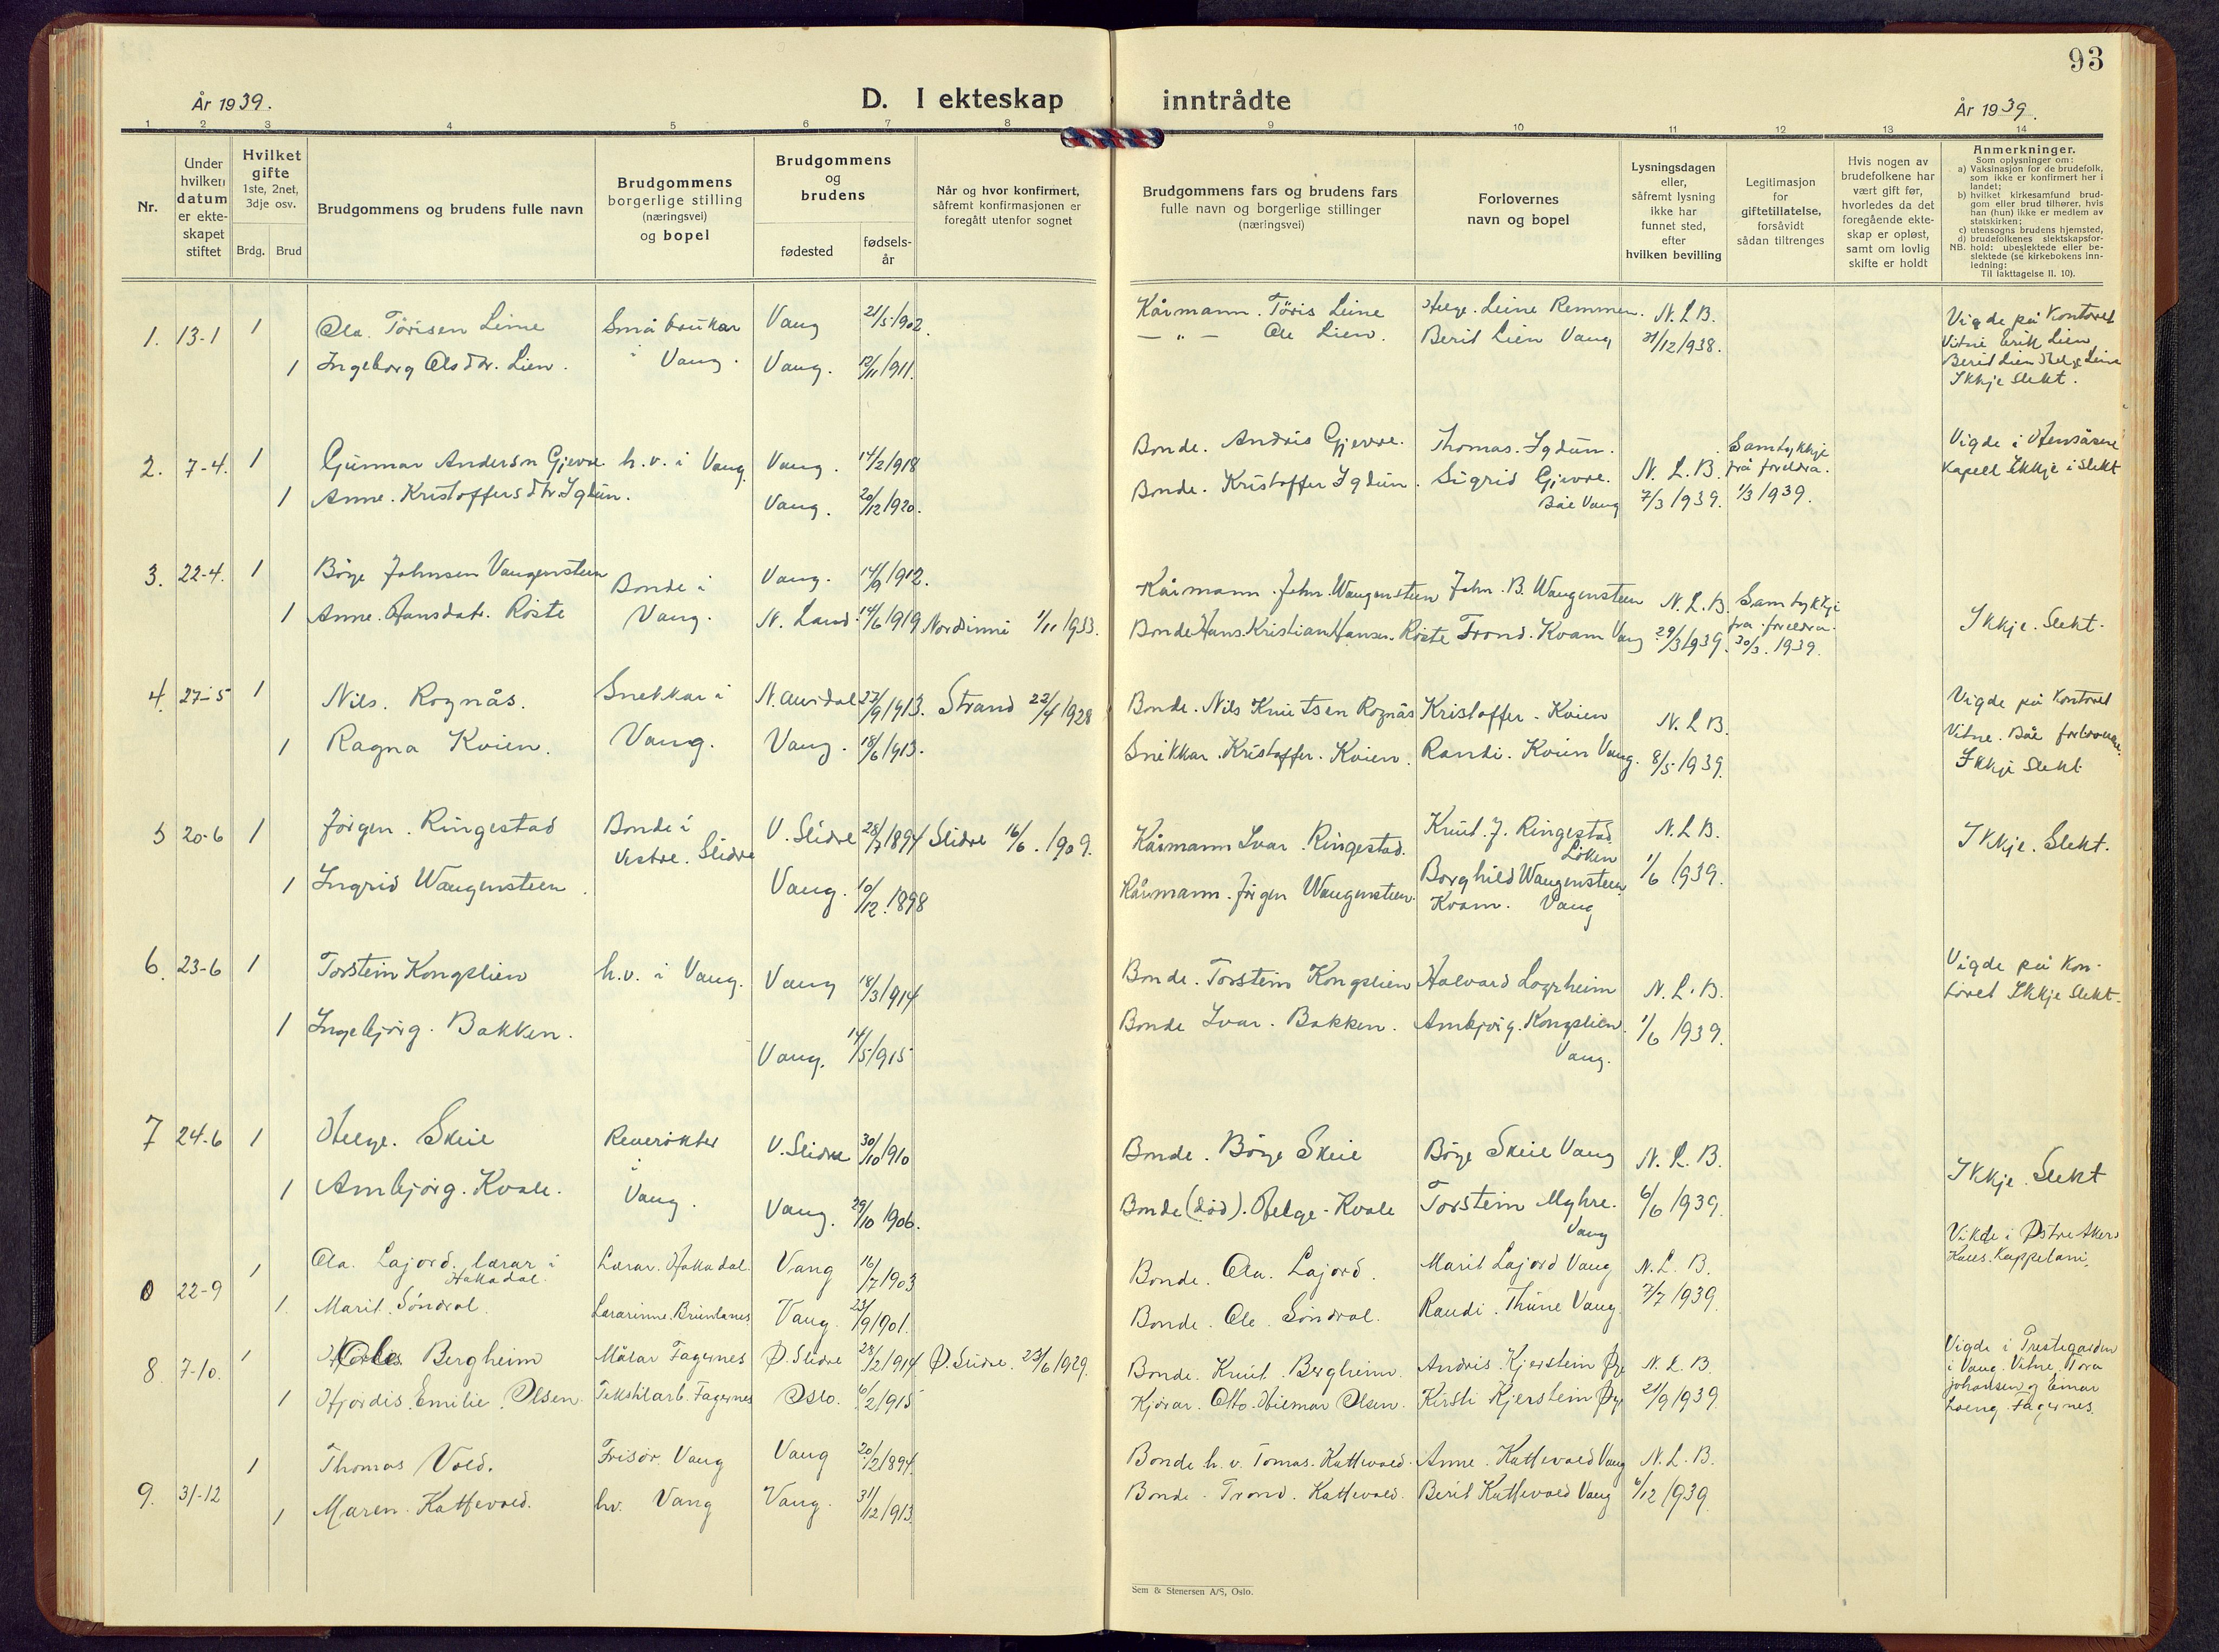 93
År 1939.
D. I ekteskap inntrådte
År 1939.
1 2 3 4 5 6 7 8 9 10 11 12 13 14
Nr.
Under hvilken datum er ekte-skapet stiftet
Hvilket gifte 1ste, 2net, 3dje osv.
Brdg. Brud
Brudgommens og brudens fulle navn
Brudgommens borgerlige stilling (næringsvei) og bopel
Brudgommens og brudens
fødested
fødsels-år
Når og hvor konfirmert, såfremt konfirmasjonen er foregått utenfor sognet
Brudgommens fars og brudens fars fulle navn og borgerlige stillinger (næringsvei)
Forlovernes navn og bopel
Lysningsdagen eller, såfremt lysning ikke har funnet sted, efter hvilken bevilling
Legitimasjon for giftetillatelse, forsåvidt sådan tiltrenges
Hvis nogen av brudefolkene har vært gift før, hvorledes da det foregående ekte-skap er opløst, samt om lovlig skifte er holdt
Anmerkninger.
Som oplysninger om:
a) Vaksinasjon for de brudefolk, som ikke er konfirmert her i landet;
b) hvilket kirkesamfund brud-gom eller brud tilhører, hvis han (hun) ikke er medlem av statskirken;
c) utensogns brudens hjemsted,
d) brudefolkenes slektskapsfor-hold: ubeslektede eller be-slektede (se kirkebokens inn-ledning:
NB.
Til Iakttagelse II. 10).
1. 13-1 1 Ola Tørisen Leine Småbrukar Vang 21/5 1902. Kårmann. Tøris Leine Helge Leine Remmen. N. L. B. Vigde på Kontoret
1 Ingeborg Olsdtr. Lien. i Vang. Vang. 12/11 1911. — " — Ole Lien. Berit Lien Vang 31/12 1938. Vitne Erik Lien
Berit Lien Helge Leine
Ikkje Slekt.
2. 7-4. 1 Gunnar Andersn Gjevre h.v. i Vang Vang. 14/2 1918 Bonde. Andris Gjevre. Thomas. Igdun. N. L. B. Samtykkje frå foreldra. Vigde i Hensåsen
1 Anne. Kristoffersdtr Igdun. Vang. 20/12 1920. Bonde. Kristoffer Igdun. Sigrid Gjevre. Båe Vang 7/3 1939. 1/3 1939. Kapell Ikkje i Slekt
3. 22-4. 1 Børge Johnsen Vangensteen Bonde i Vang. 14/9 1912. Kårmann. John. Wangensteen John. B. Wangensteen N. L. B. Samtykkje
1 Anne. Hansdatr. Røste Vang. N. Land. 14/6 1919 Nordsinni 1/11 1933. Bonde Hans Kristian Hansen. Røste Trond. Kvam Vang 29/3 1939. fra foreldra. 30/3. 1939. Ikkje. Slekt.
4. 27-5 1 Nils. Rognås. Snekkar i N. Aurdal 27/9 1913. Strand 22/4 1928 Bonde. Nils Knutsen Rognås Kristoffer. Kvien N. L. B. Vigde på Kontoret
1 Ragna Kvien. Vang. Vang. 18/6 1913. Snikkar. Kristoffer. Kvien. Randi. Kvien Vang. 8/5 1939. Vitne. Båe forlovarane.
Ikkje Slekt.
5 20-6 1 Jørgen. Ringestad Bonde i V. Slidre 28/7 1894 Slidre 16/6. 1909. Kårmann Ivar. Ringestad. Knut. J. Ringestad Løken N. L. B. Ikkje. Slekt.
vestre. Slidre
1 Ingrid Wangensteen. Vang. 10/12. 1898 Kårmann. Jørgen Wangensteen. Borghild Wangensteen Kvam. Vang 1/6 1939.
6. 23-6 1 Torstein Kongslien h.v. i Vang. Vang 18/3 1914 Bonde. Torstein Kongslien Halvard Logrheim N. L. B. Vigde på Kon-
toret Ikkje Slekt.
1 Ingebjørg. Bakken. Vang. 14/5 1915 Bonde Ivar. Bakken. Ambjørg. Kongslien. Vang. 1/6 1939.
7 24-6 1 Helge. Skeie Reverøkter V. Slidre 30/10 1910 Bonde. Børge Skeie Børge Skeie Vang N. L. B.
1 Ambjørg. Kvale. i Vang. Vang. 29/10 1906. Bonde (død). Helge. Kvale Torstein Myhre. Vang 6/6 1939. Ikkje. Slekt
0 22-9 1 Ola. Lajord. lærar i Hakadal. Lærar. Hakadal. Vang 16/7 1903 Bonde. Ola. Lajord. Marit Lajord Vang N. L. B. Vikde i Østre Aker
1. Marit. Søndrol. Lærarinne. Brunlanes Vang. 23/9 1901. Bonde. Ole. Søndrol. Randi. Thune Vang. 7/7 1939.
8 7-10. 1 Ole Bergheim Målar Fagernes Ø. Slidre 28/2 1914 Ø. Slidre. 23/6 1929. Bonde. Knut. Bergheim. Andris. Kjerstein Øye N. L. B. Vigde i Prestegarden
i Vang. Vitne Tora
1 Hjørdis. Emilie. Olsen. Tekstilarb. Fagernes Oslo. 6/2 1915 Kjørar. Otto. Hilmar Olsen. Kirsti Kjerstein Øye 21/9 1939. Johansen og Einar
Loeng Fagernes.
9. 31-12 1 Thomas Vold. Frisør. Vang Vang 20/2 1894. Bonde h. v. Tomas. Kattevold. Anne. Kattevold Vang N. L. B.
1 Maren. Kattevold. hv. Vang Vang. 31/12 1913. Bonde. Trond. Kattevold. Berit Kattevold Vang 6/12 1939.
Sem & Stenersen A/S, Oslo.